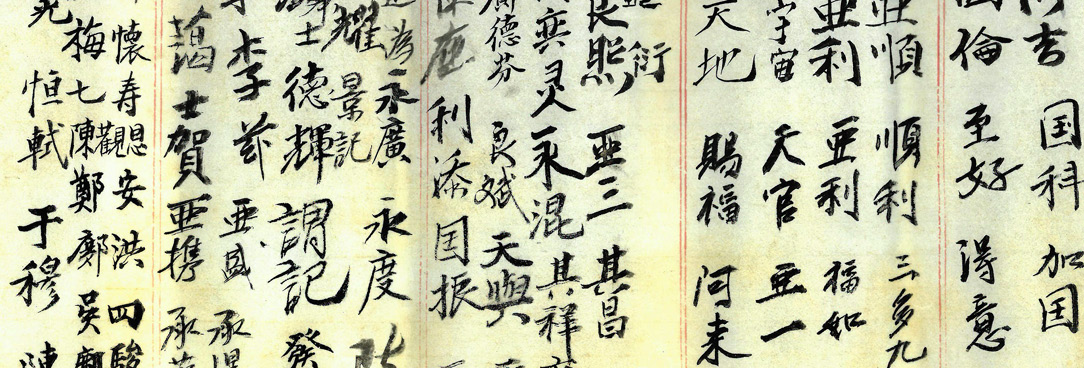 阿吉 国科 加国
国倫 至好 得意
亜順 順利 三多九
亜利 亜利 福如
宇宙 天官 亜一
天地 賜福 阿来
衍
良照 亜三 其昌
奕灵 永混 其祥
德芬 良斌 天與
利添 国振
為 永廣 永度
耀 景記
士 德輝 謂記 發
李 李 茲 亜盛 承
蔼 士賀 亜携 承
懷寿 思安 洪 四駿
梅七 陳觀 鄭 鄺 吳
恒軾 于穆 陳